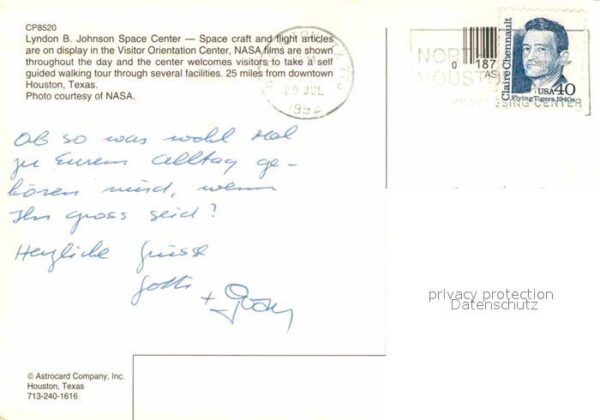 CP8520
Lyndon B. Johnson Space Center — Space craft and flight articles
are on display in the Visitor Orientation Center, NASA films are shown
throughout the day and the center welcomes visitors to take a self
guided walking tour through several facilities. 25 miles from downtown
Houston, Texas.
Photo courtesy of NASA.
28 JUL
1992
NORTH
HOUSTON
PROCESSING CENTER
0 187
Claire Chennault
USA 40
Flying Tigers, 1940s
Ob so was wohl Mal
zu Eurem Alltag ge-
hören wird, wenn
Ihr gross seid?
Herzliche Grüsse
privacy protection
Datenschutz
© Astrocard Company, Inc.
Houston, Texas
713-240-1616